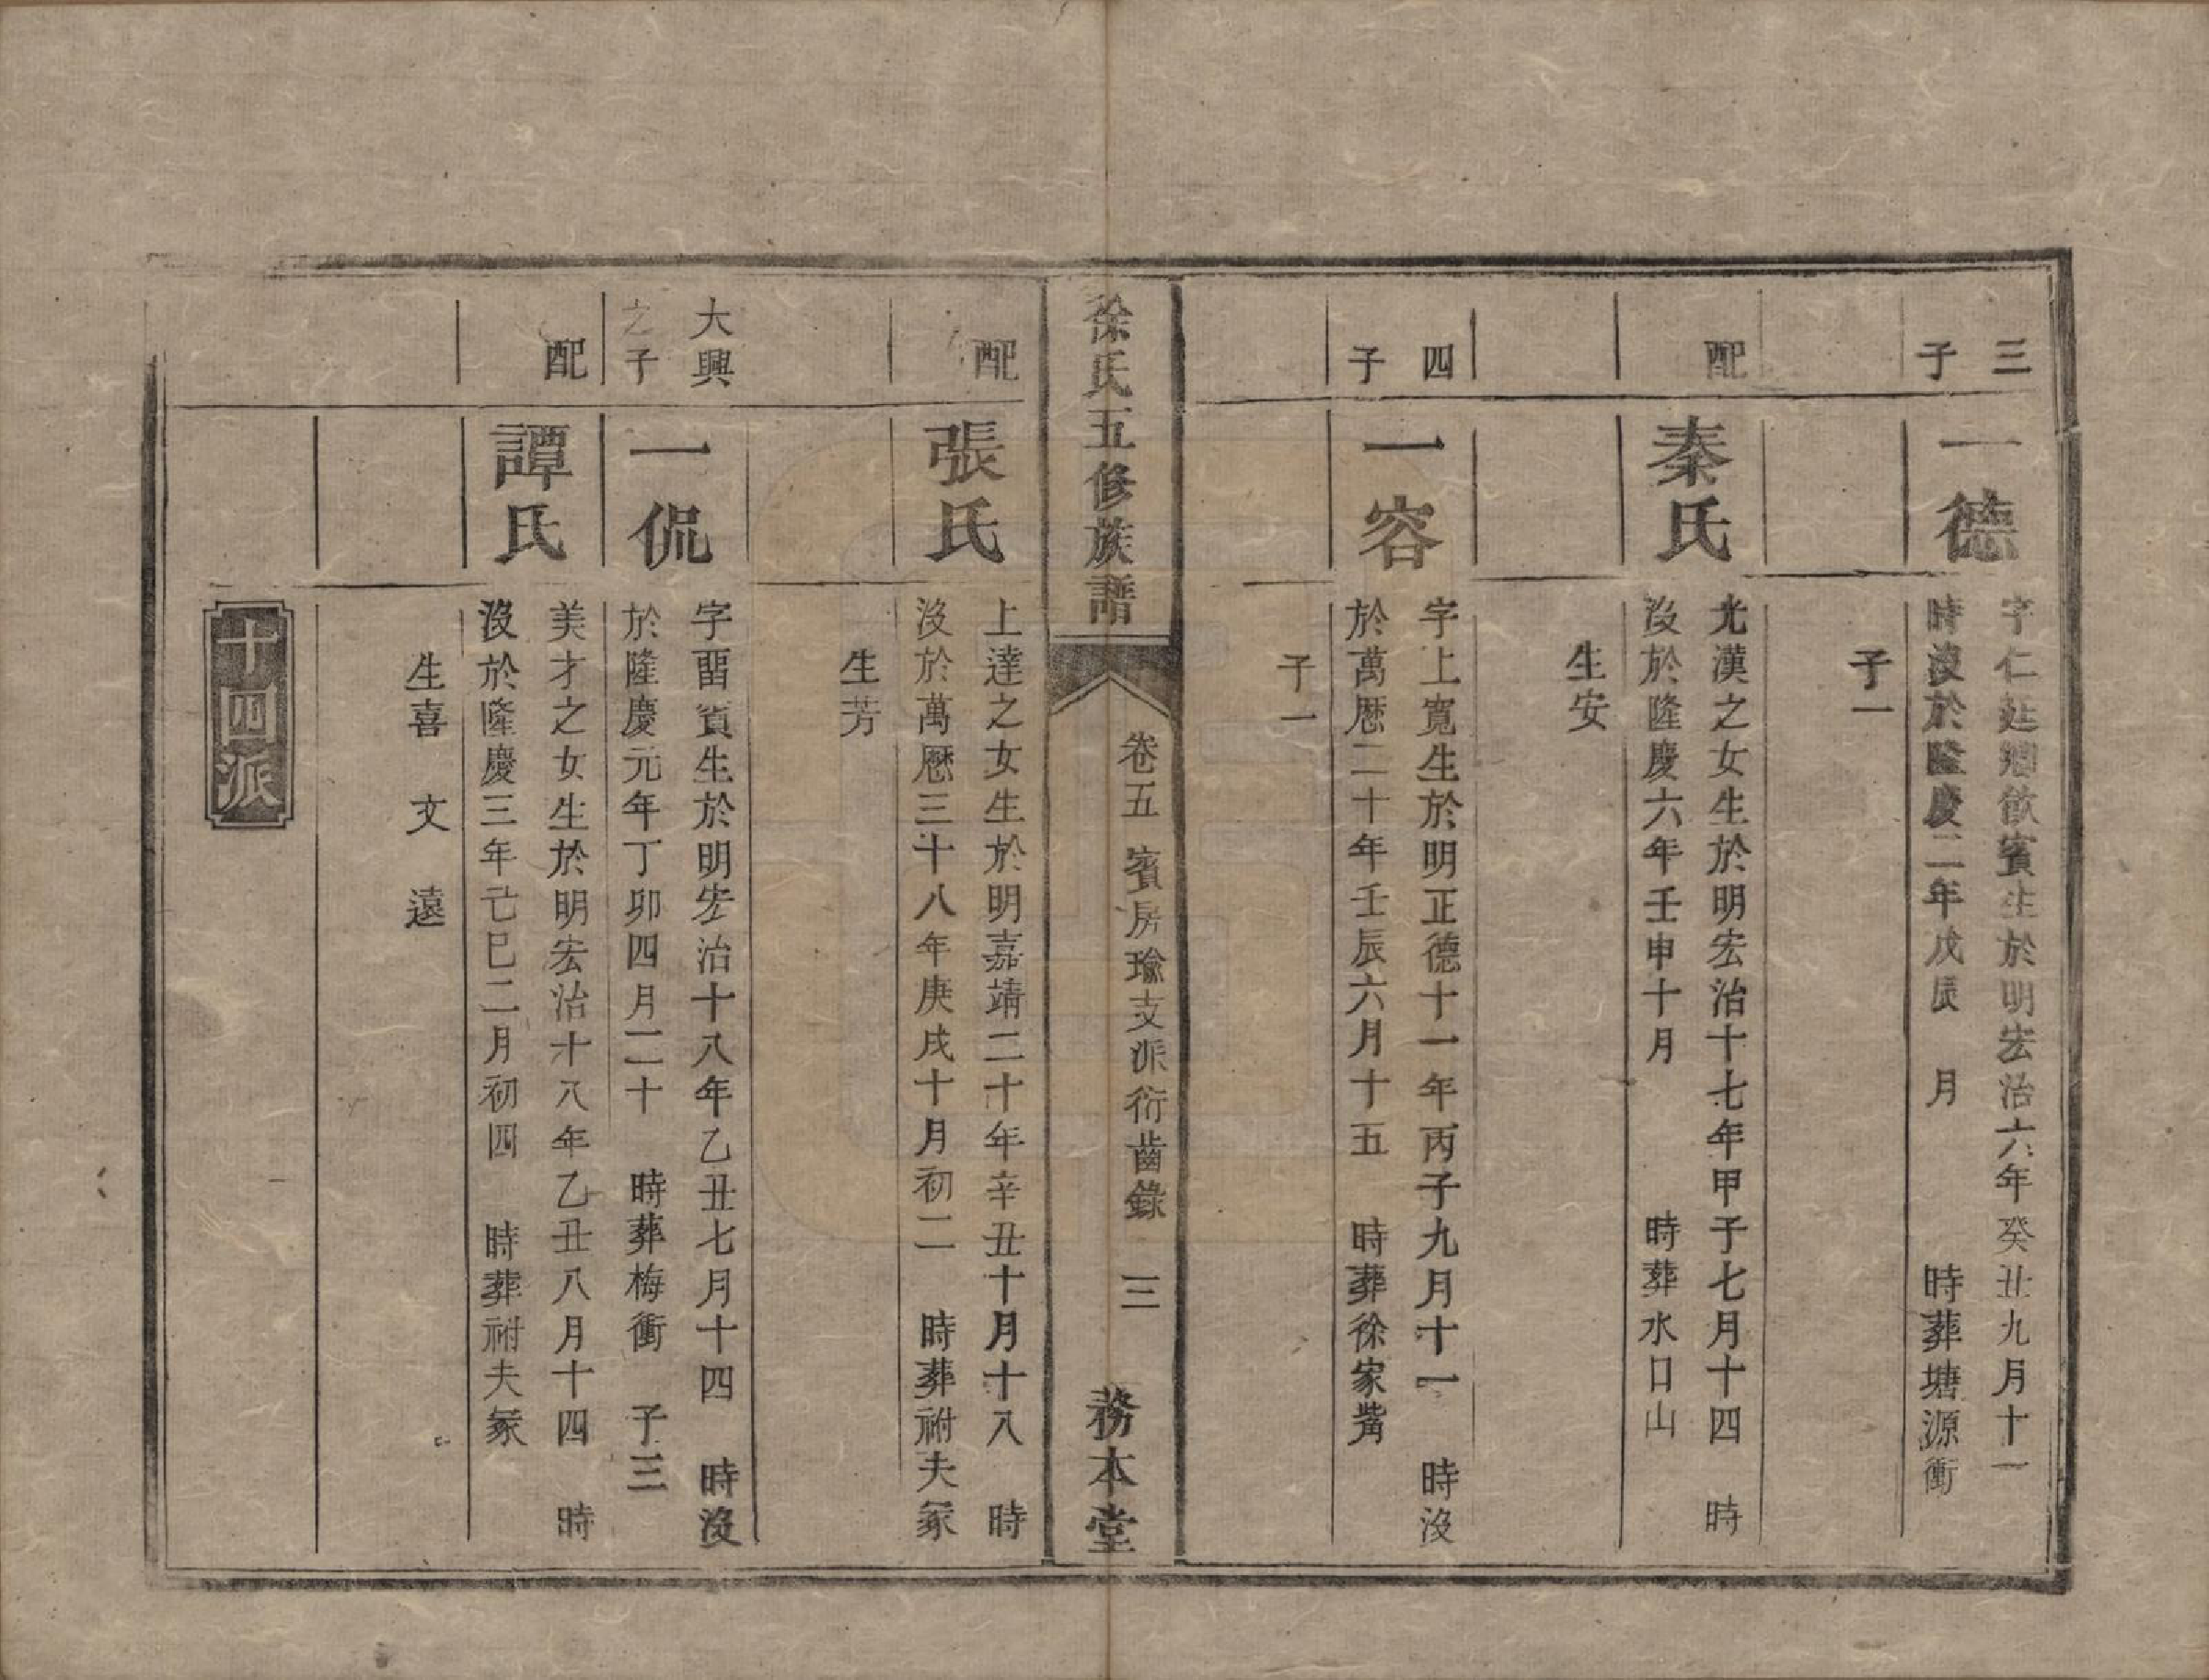 三子
一德
字仁廷鄉飲賓生於明宏治六年癸丑九月十一
時沒於隆慶二年戊辰　月　　　時葬塘源衝
子一
配
秦氏
光漢之女生於明宏治十七年甲子七月十四　時
沒於隆慶六年壬申十月　　　時葬水口山
生安
四子
一容
字上寬生於明正德十一年丙子九月十一　時沒
於萬厯二十年壬辰六月十五　時葬徐家觜
子一
徐氏五修族譜
卷五　賓房瑜支派衍齒錄　三
務本堂
配
張氏
上達之女生於明嘉靖二十年辛丑十月十八　時
沒於萬厯三十八年庚戌十月初二　時葬祔夫冢
生芳
大興之子
一侃
字畱賓生於明宏治十八年乙丑七月十四　時沒
於隆慶元年丁卯四月二十　時葬梅衝　子三
配
譚氏
美才之女生於明宏治十八年乙丑八月十四　時
沒於隆慶三年己巳二月初四　時葬祔夫冢
生喜　文　遠
十四派